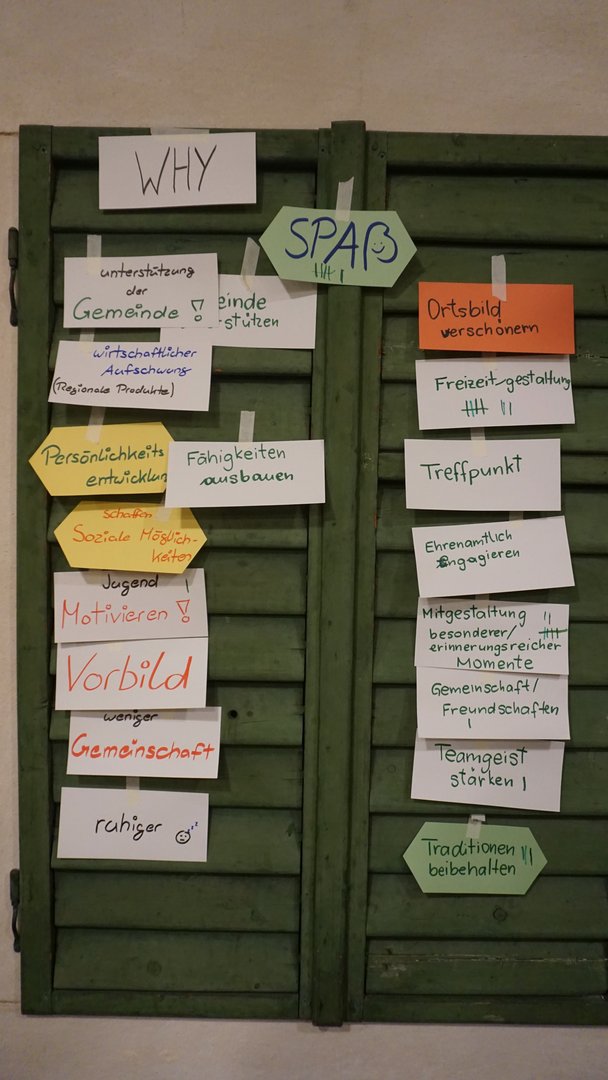 WHY
SPAß
unterstützung
der
Gemeinde !
einde
stützen
wirtschaftlicher
Aufschwung
(Regionale Produkte)
Persönlichkeits
entwicklun
Fähigkeiten
ausbauen
schaffen
Soziale Möglich-
keiten
Jugend
Motivieren !
Vorbild
weniger
Gemeinschaft
ruhiger
Ortsbild
verschönern
Freizeitgestaltung
Treffpunkt
Ehrenamtlich
Engagieren
Mitgestaltung
besonderer/
erinnerungsreicher
Momente
Gemeinschaft/
Freundschaften
Teamgeist
stärken
Traditionen
beibehalten